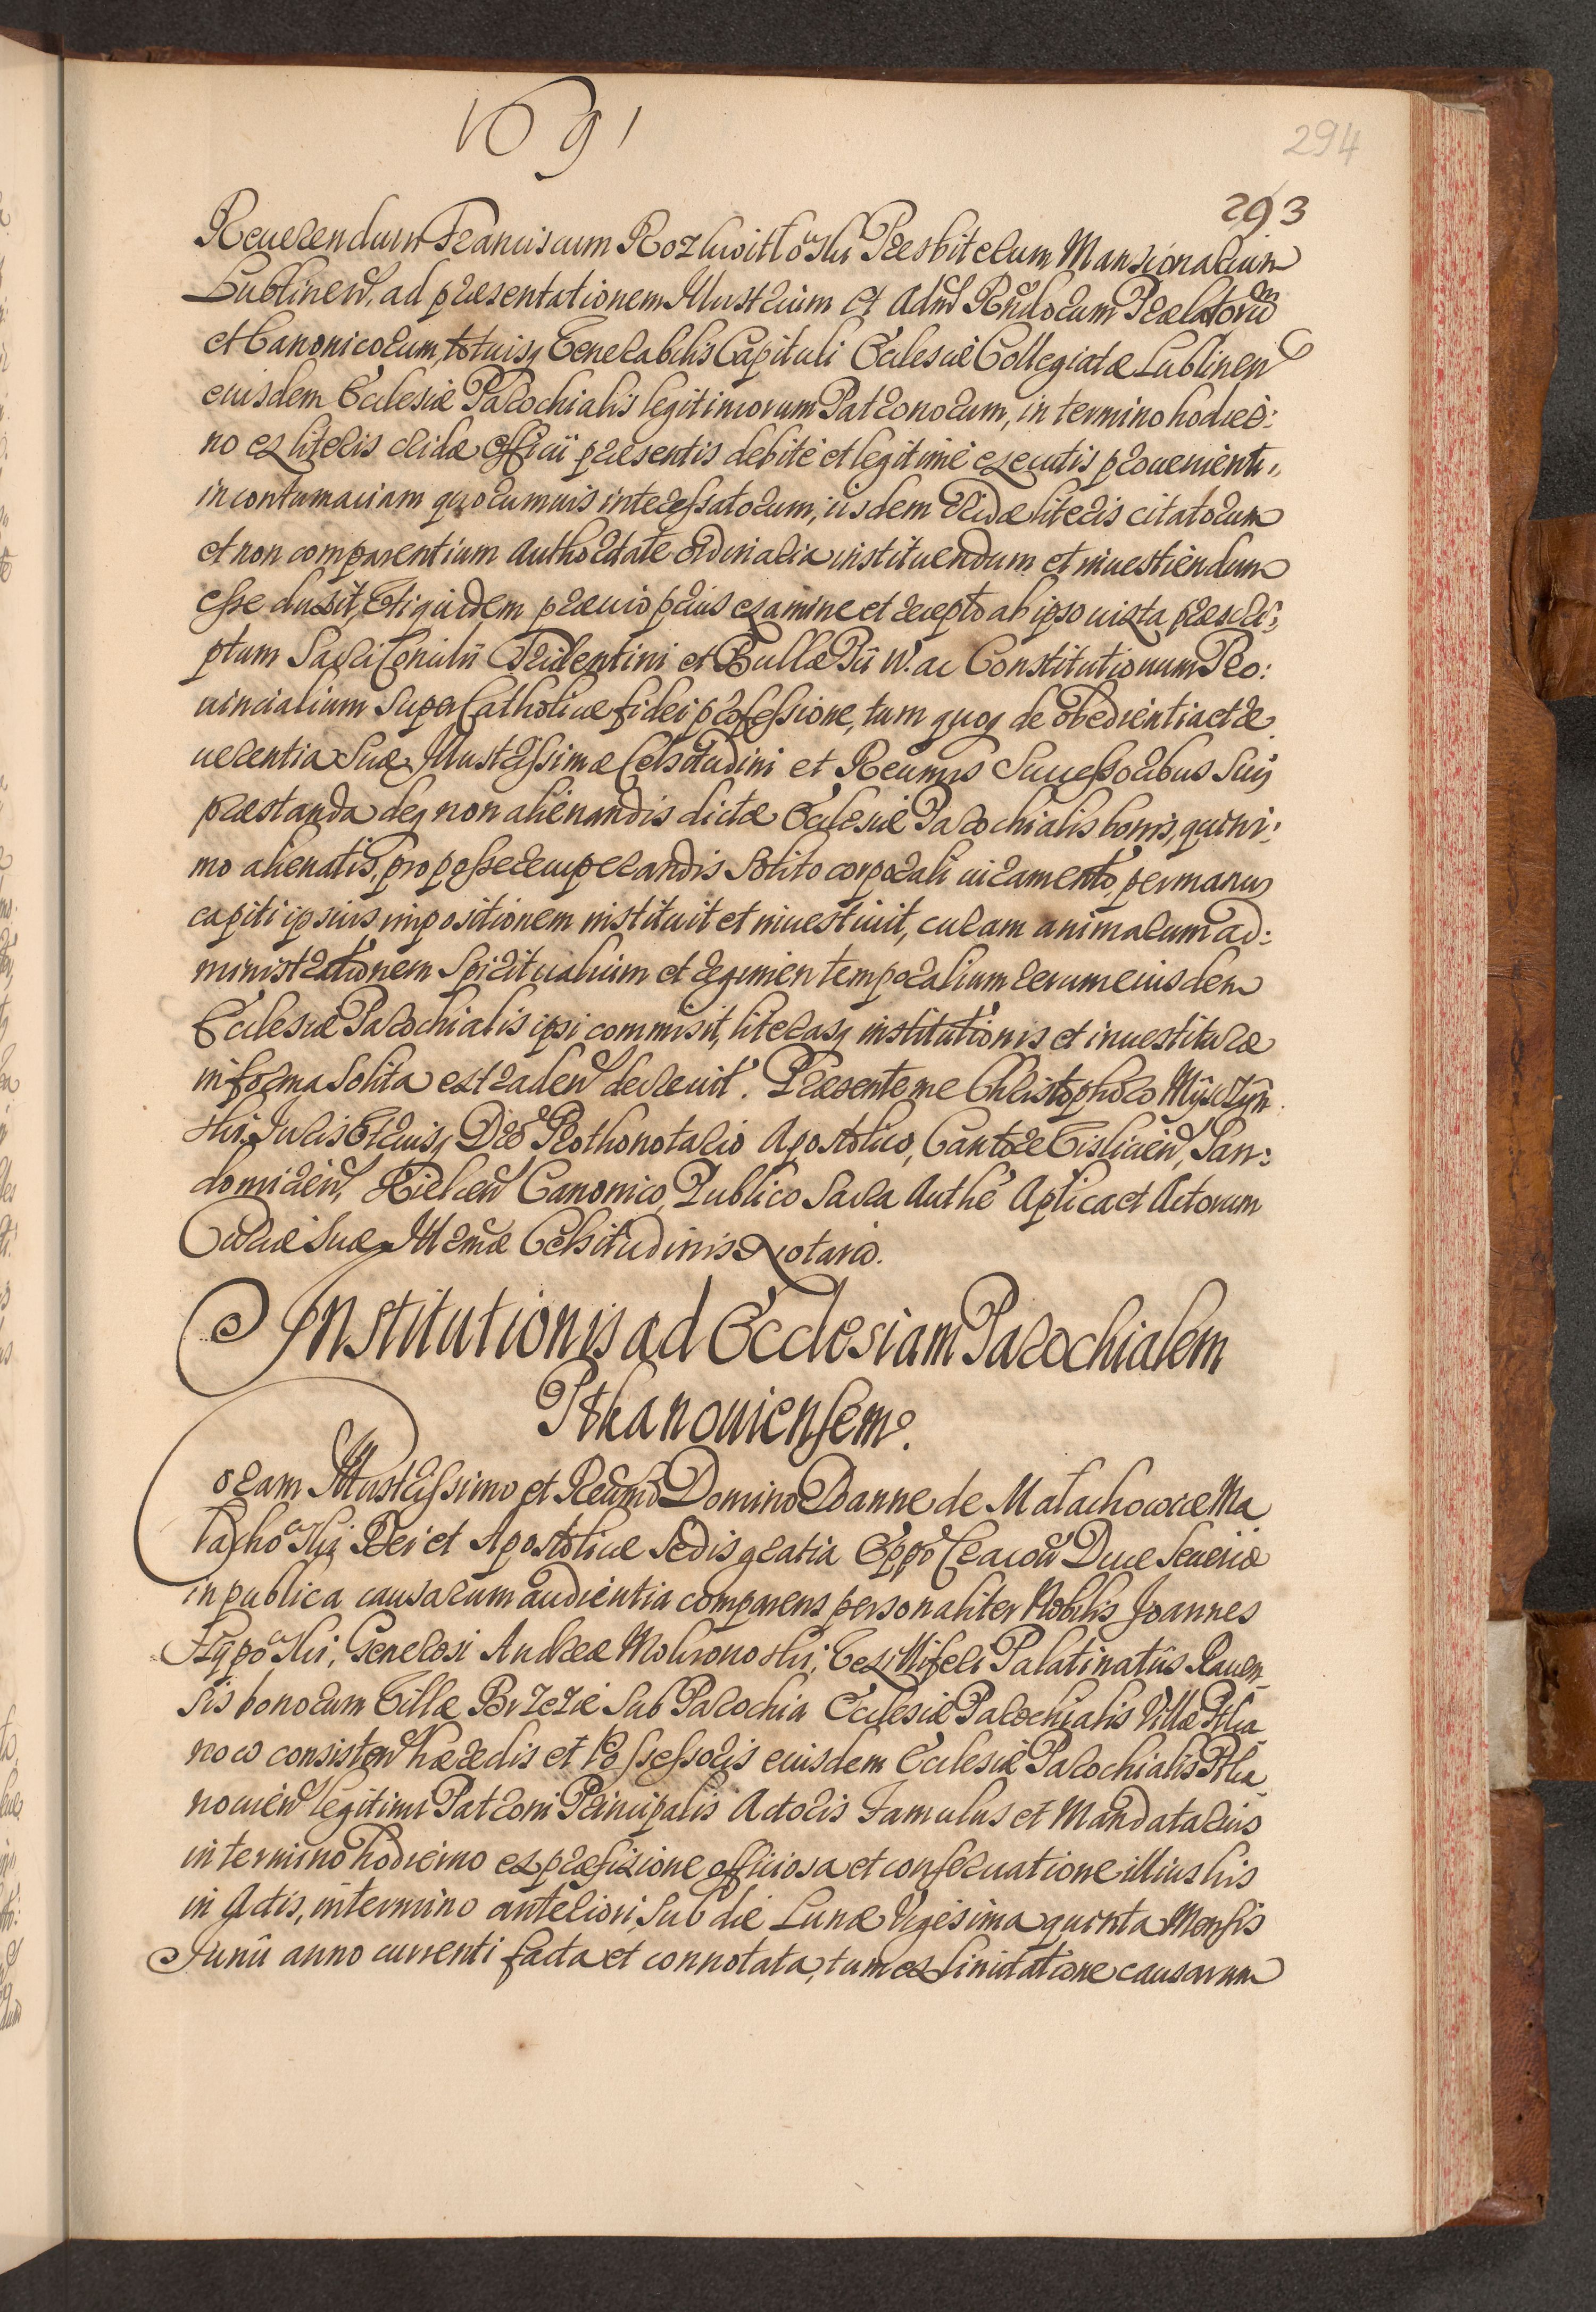 1691
294
293
Reuerendum Franciscum Rozkwitkowski Presbiterum Mansionarium
Lublineñ, ad præsentationem Illustrium et Admd Rndorum Prælatorum
et Canonicorum, totiusq Venerabilis Capituli Ecclesiæ Collegiatæ Lublineñ
eiusdem Ecclesiæ Parochialis legitimorum Patronorum, in termino hodier:
no ex literis cridæ officii præsentis debitè et legitimè executis prouenienti,
in contumaciam quorumuis interessatorum, iisdem Cridæ literis citatorum
et non comparentium Authoritate ordinaria instituendum et inuestiendum
esse duxit, Et iquidem præuio prius examine et recepto ab ipso iuxta præscri:
ptum Sacri Concilii Tridentini et Bullæ Pii IV. ac Constitutionum Pro:
uincialium super Catholicæ fidei professione, tum quoq de obedientia et re
uerentia Suæ Illustrissimæ Celsitudini et Reumis Successoribus Suis
præstanda deq non alienandis dictæ Ecclesiæ Parochialis bonis, quini:
mo alienatis, pro posse recuperandis solito corporali iuramento, per manus
capiti ipsius impositionem instituit et inuestiuit, curam animarum ad:
ministrationem Spiritualium et regimen temporalium rerum eiusdem
Ecclesiæ Parochialis ipsi commisit, literasq institutionis et inuestituræ
in forma solita extradeñ decreuit. Præsente me Christophoro Mijszyn
ski Iuris Vtriusq Dre Prothonotario Apostolico, Cantore Visliceñ, San:
domirieñ, Kielceñ Canonico, Publico Sacra Authe Aplica et Actorum
Curiæ Suæ Illrmæ Celsitudinis Notario.
Institutionis ad Ecclesiam Parochialem
Pthanouiensem.
Coram Illustrissimo et Reumo Domino Ioanne de Małachowice Ma
łachowski Dei et Apostolicæ Sedis gratia Eppo Cracoñ Duce Seueriæ
in publica causarum audientia comparens personaliter Nobilis Joannes
Lipowski, Generosi Andreæ Mokronoski, Vexilliferi Palatinatûs Rauen
sis bonorum Villæ Brzezie sub Parochia Ecclesiæ Parochialis Villæ Pka
now consisteñ hæredis et Possessoris eiusdem Ecclesiæ Parochialis Pka
nouieñ legitimi Patroni Principalis Actoris Famulus et Mandatarius
in termino hodierno ex præfixione officiosa et conseruatione illius his
in Actis, in termino anteriori, sub die Lunæ Vigesima quinta Mensis
Junii anno currenti facta et connotata, tum ex limitatione causarum